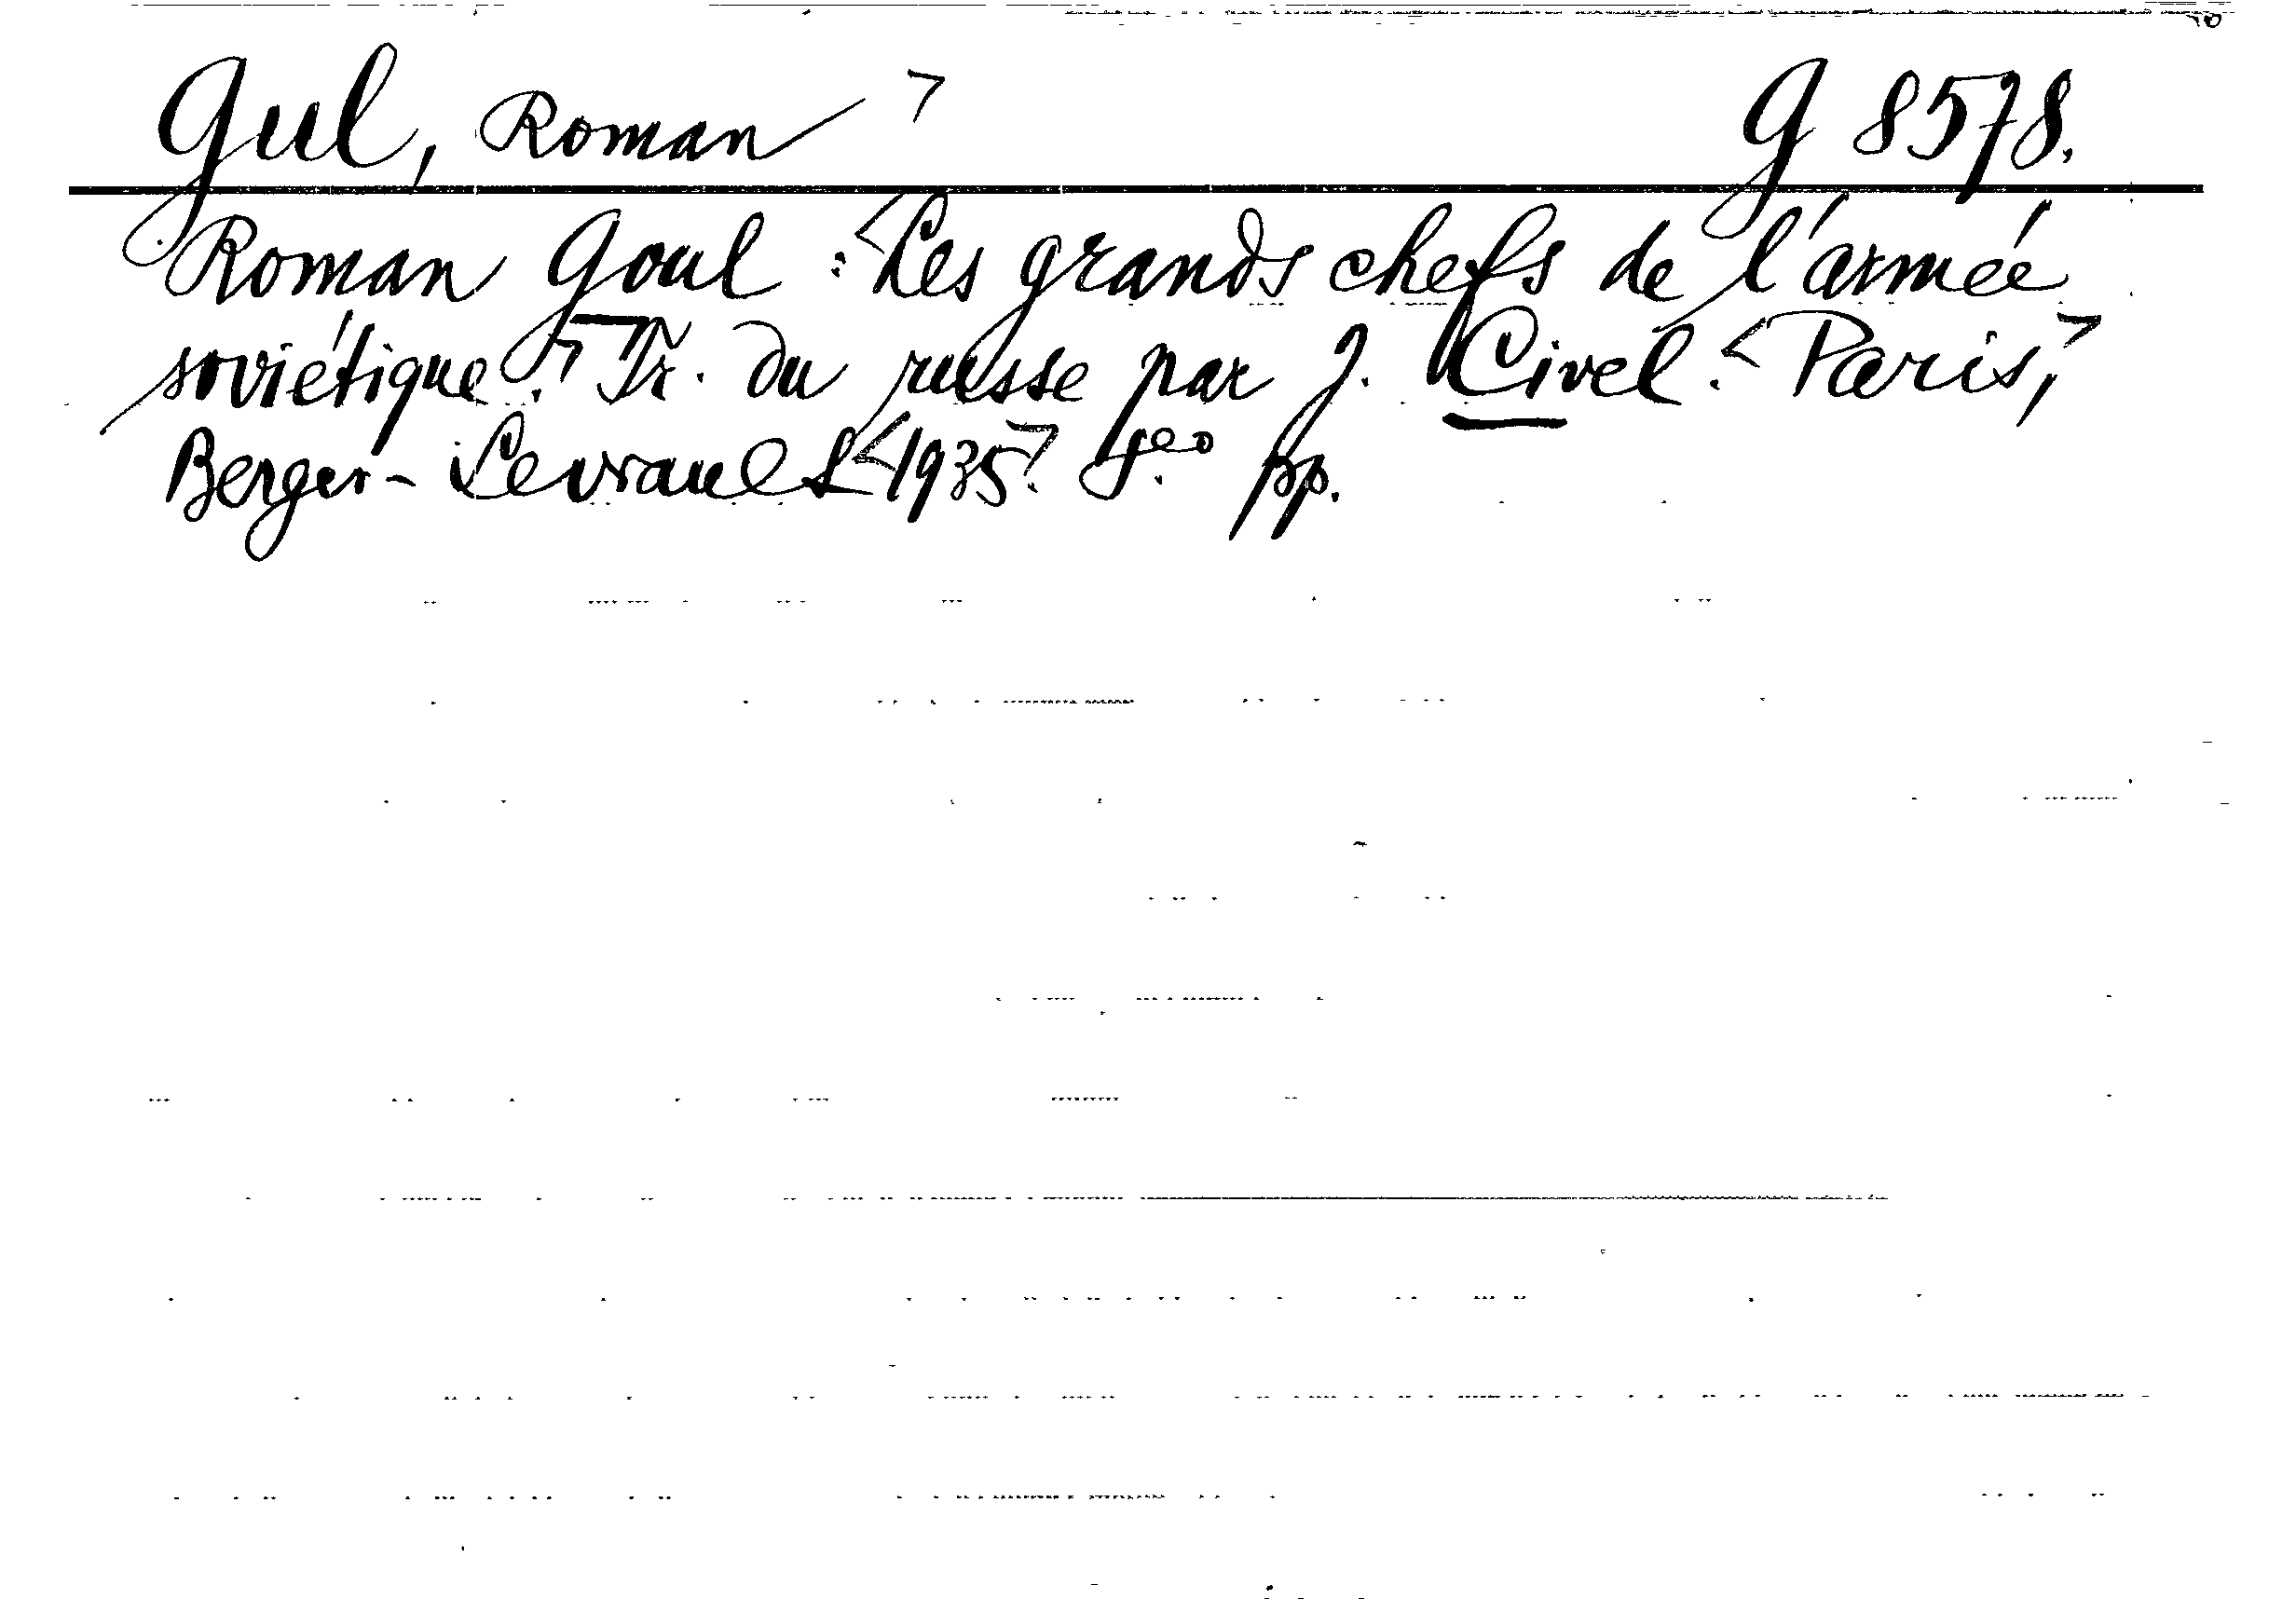 Gul, Roman > G 8578.
Roman Goul : <Les grands chefs de l'armée
soviétique.> Tr. du russe par J. Civel. <Paris,>
Berger-Levrault <1935>. 8° pp.